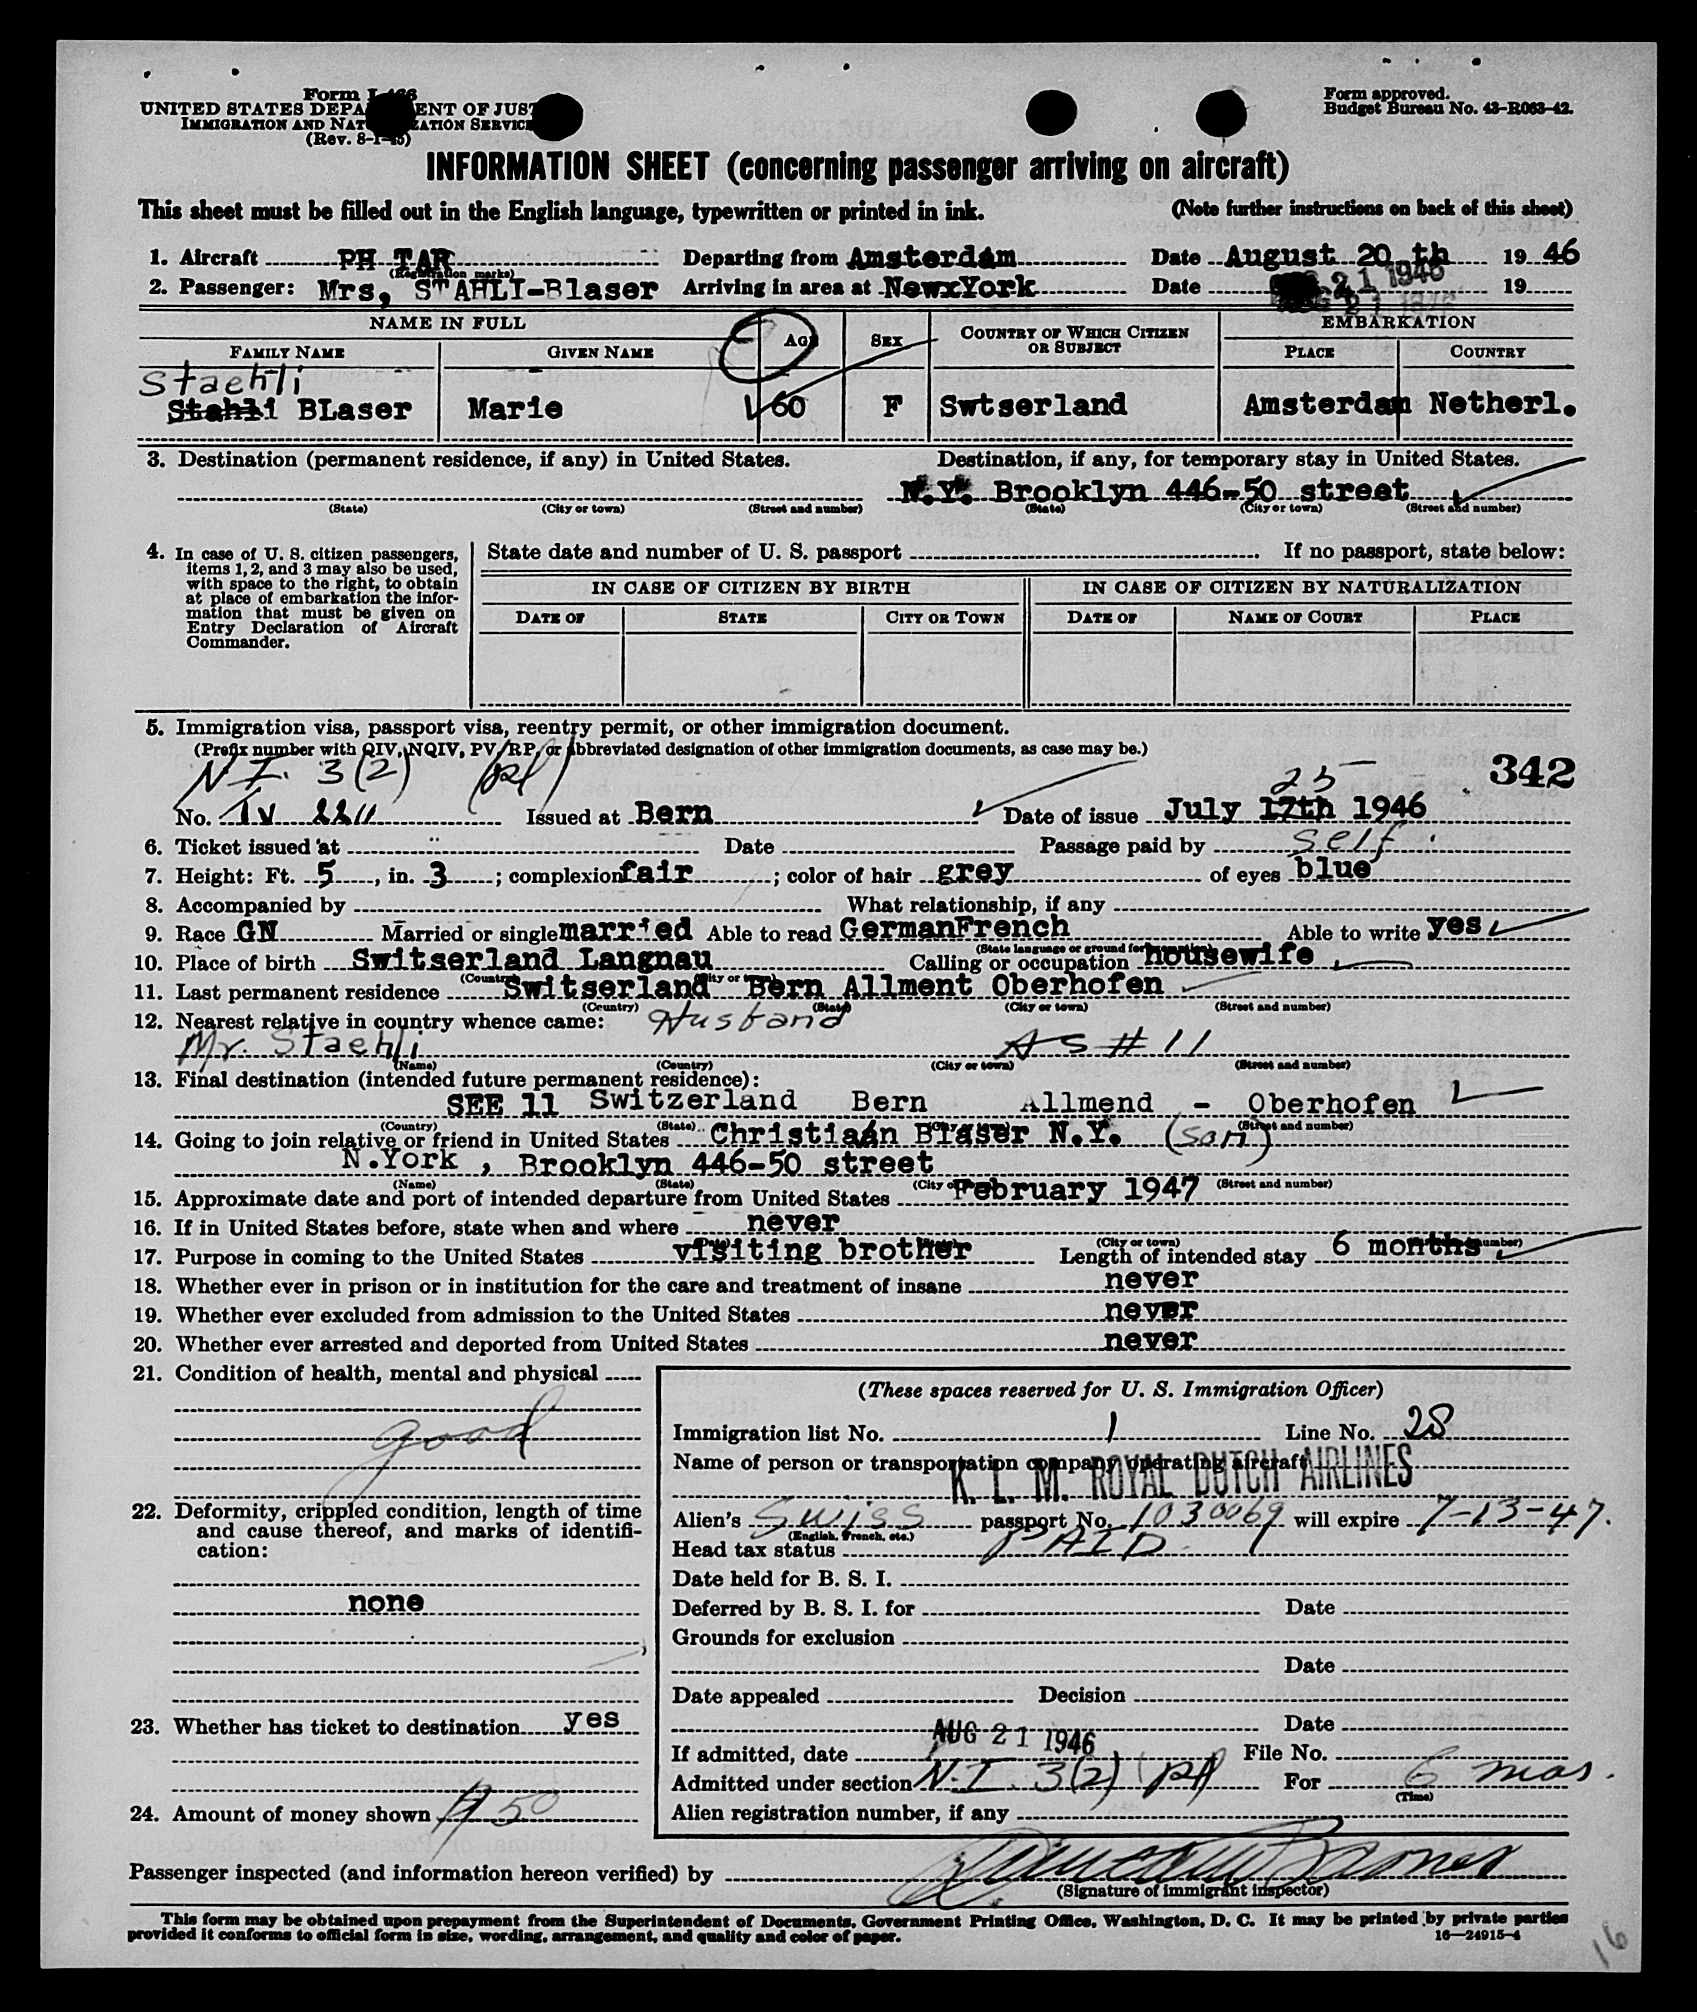 Form I-466
UNITED STATES DEPARTMENT OF JUSTICE
IMMIGRATION AND NATURALIZATION SERVICE
(Rev. 8-1-45)
Form approved.
Budget Bureau No. 43-R063-42.
INFORMATION SHEET (concerning passenger arriving on aircraft)
This sheet must be filled out in the English language, typewritten or printed in ink. (Note further instructions on back of this sheet)
1. Aircraft PH TAR Departing from Amsterdam Date August 20 th 19 46
(Registration marks)
2. Passenger: Mrs, STAHLI-Blaser Arriving in area at NewxYork Date AUG 21 1946 19
NAME IN FULL Age Sex COUNTRY OF WHICH CITIZEN OR SUBJECT EMBARKATION
FAMILY NAME GIVEN NAME PLACE COUNTRY
Staehli
Stahli BLaser Marie 60 F Swtserland Amsterdam Netherl.
3. Destination (permanent residence, if any) in United States. Destination, if any, for temporary stay in United States.
N.Y. Brooklyn 446-50 street
(State) (City or town) (Street and number) (State) (City or town) (Street and number)
4. In case of U. S. citizen passengers, items 1, 2, and 3 may also be used, with space to the right, to obtain at place of embarkation the information that must be given on Entry Declaration of Aircraft Commander.
State date and number of U. S. passport If no passport, state below:
IN CASE OF CITIZEN BY BIRTH IN CASE OF CITIZEN BY NATURALIZATION
DATE OF STATE CITY OR TOWN DATE OF NAME OF COURT PLACE
5. Immigration visa, passport visa, reentry permit, or other immigration document.
(Prefix number with QIV, NQIV, PV, RP, or abbreviated designation of other immigration documents, as case may be.)
N.I. 3(2) 25 342
No. Issued at Bern Date of issue July 17th 1946
6. Ticket issued at Date Passage paid by self
7. Height: Ft. 5, in. 3; complexion fair; color of hair grey of eyes blue
8. Accompanied by What relationship, if any
9. Race GN Married or single married Able to read GermanFrench Able to write yes
(State language or ground for exemption)
10. Place of birth Switserland Langnau Calling or occupation housewife
(Country) (City or town)
11. Last permanent residence Switserland Bern Allment Oberhofen
(Country) (State) (City or town) (Street and number)
12. Nearest relative in country whence came: Husband
Mr. Staehli AS # 11
(Name) (Country) (City or town) (Street and number)
13. Final destination (intended future permanent residence):
SEE 11 Switzerland Bern Allmend - Oberhofen
(Country) (State) (Street and number)
14. Going to join relative or friend in United States Christiaan Blaser N.Y. (son)
N.York , Brooklyn 446-50 street
(Name) (State) (City or town) (Street and number)
15. Approximate date and port of intended departure from United States February 1947
16. If in United States before, state when and where never
(City or town) (Street and number)
17. Purpose in coming to the United States visiting brother Length of intended stay 6 months
18. Whether ever in prison or in institution for the care and treatment of insane never
19. Whether ever excluded from admission to the United States never
20. Whether ever arrested and deported from United States never
21. Condition of health, mental and physical
good
22. Deformity, crippled condition, length of time and cause thereof, and marks of identification:
none
23. Whether has ticket to destination yes
24. Amount of money shown $ 50
(These spaces reserved for U. S. Immigration Officer)
Immigration list No. 1 Line No. 28
Name of person or transportation company operating aircraft
K. L. M. ROYAL DUTCH AIRLINES
Alien's Swiss passport No. 1030069 will expire 7-13-47.
(English, French, etc.)
Head tax status PAID
Date held for B. S. I.
Deferred by B. S. I. for Date
Grounds for exclusion
Date
Date appealed Decision
Date
If admitted, date AUG 21 1946 File No.
Admitted under section N.I. 3(2) For 6 mos.
(Time)
Alien registration number, if any
Passenger inspected (and information hereon verified) by
(Signature of immigrant inspector)
This form may be obtained upon prepayment from the Superintendent of Documents, Government Printing Office, Washington, D. C. It may be printed by private parties
provided it conforms to official form in size, wording, arrangement, and quality and color of paper.
16—24915-4
16